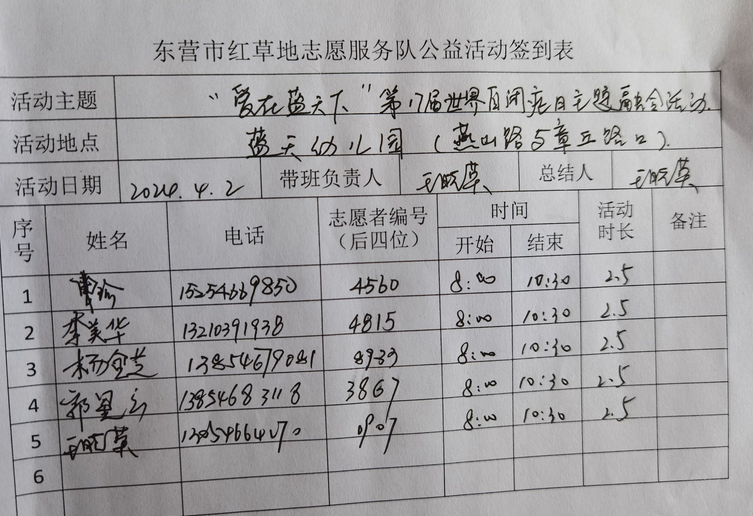 东营市红草地志愿服务队公益活动签到表
活动主题 “爱在蓝天下”第17届世界自闭症日主题融合活动
活动地点 蓝天幼儿园（燕山路与章丘路口）
活动日期 2024.4.2 带班负责人 王晓英 总结人 王晓英
序号 姓名 电话 志愿者编号（后四位） 时间 开始 结束 活动时长 备注
1 15254669850 4560 8:00 10:30 2.5
2 李美华 13210391938 4815 8:00 10:30 2.5
3 杨金芝 13854679081 8:00 10:30 2.5
4 13854683118 3867 8:00 10:30 2.5
5 王晓英 0907 8:00 10:30 2.5
6